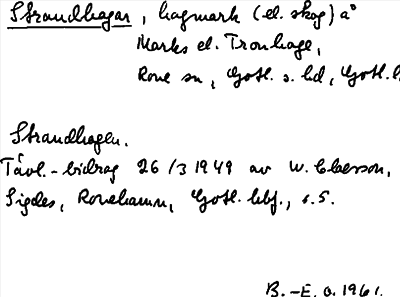 Strandhagar, hagmark (el. skog) å
Marks el. Tronhage,
Rone sn, Gotl. s. hd, Gotl. l
Strandhagen.
Tävl.-bidrag 26/3 1949 av W. Claesson,
Sigdes, Ronehamn, Gotl. lbf., s. 5.
B.-E. O. 1961.